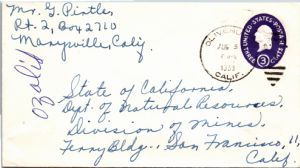 Mr. G. Pintler
Rt. 2, Box 2710
Marysville, Calif.
OLIVEHURST
JUN 3
1953
CALIF.
UNITED STATES POSTAGE
THREE CENTS
3
ozalid
State of California,
Dept. of Natural Resources,
Division of Mines,
Ferry Bldg., San Francisco, 11
Calif.